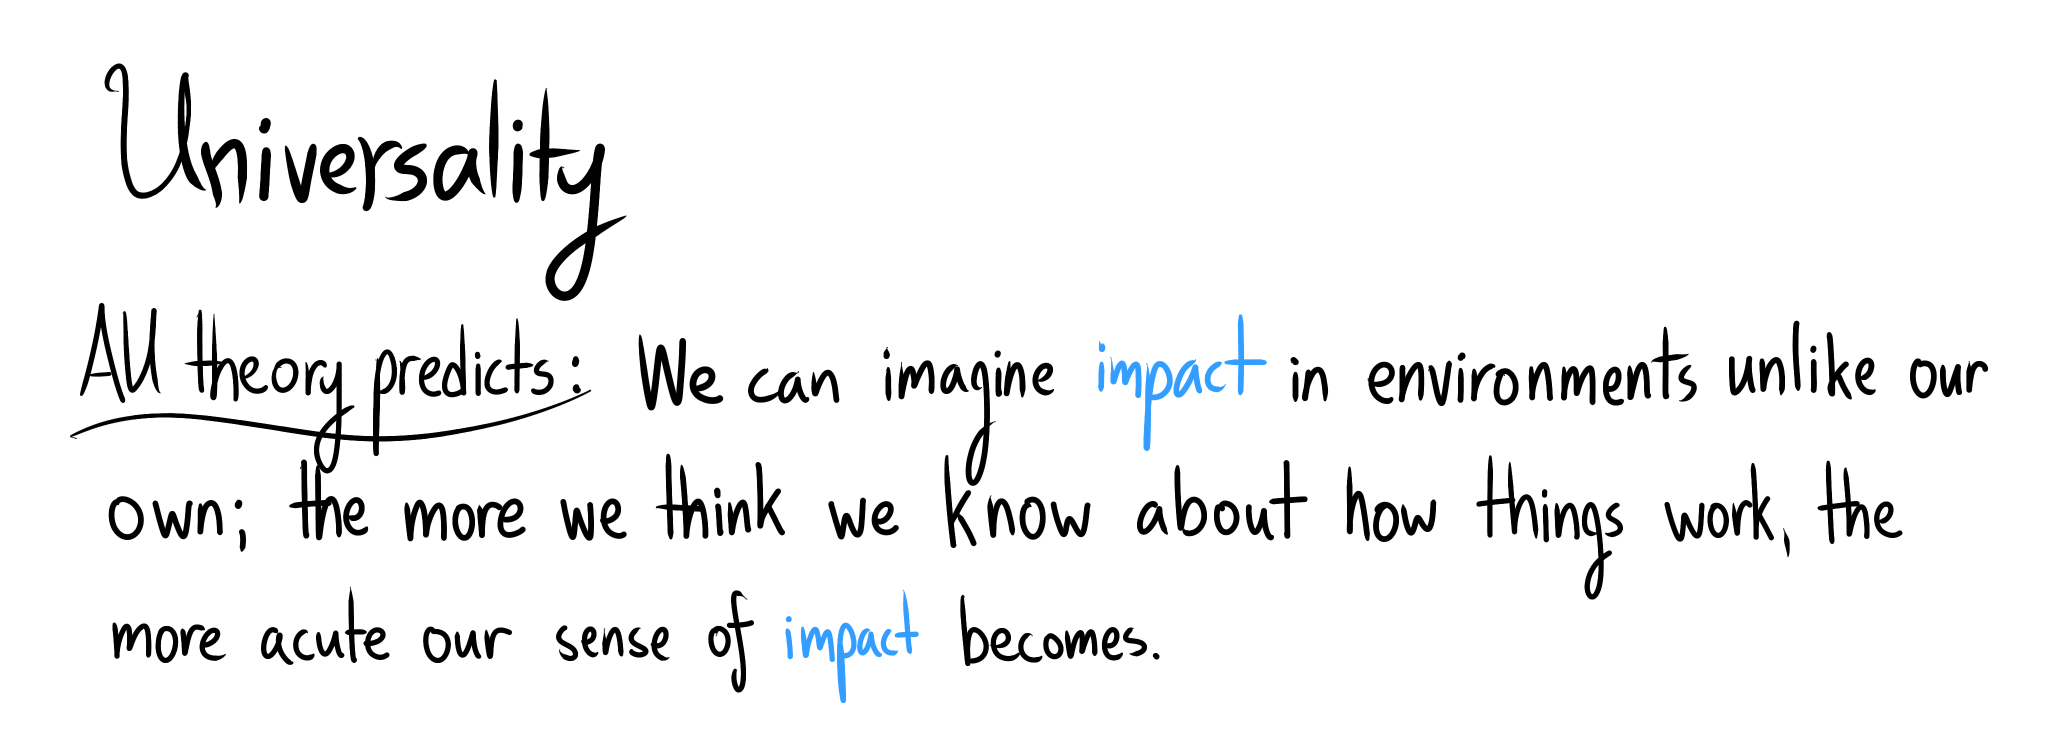 Universality
AU theory predicts: We can imagine impact in environments unlike our
own; the more we think we know about how things work, the
more acute our sense of impact becomes.